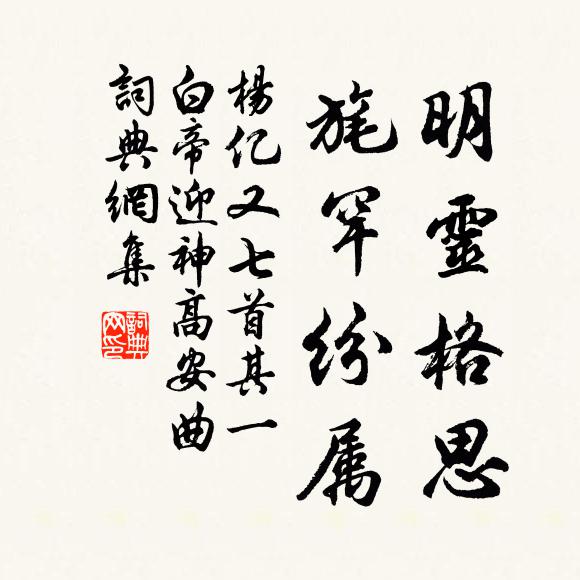 明靈格思
旄罕纷属
楊亿又七首其一
白帝迎神高安曲
詞典網集
詞典网印